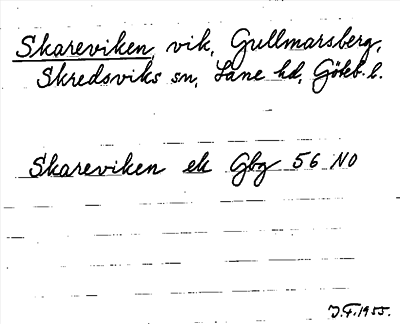 Skareviken, vik, Gullmarsberg,
Skredsviks sn, Lane hd, Göteb. l.
Skareviken ek Gbg 56 NO
J.F. 1955.